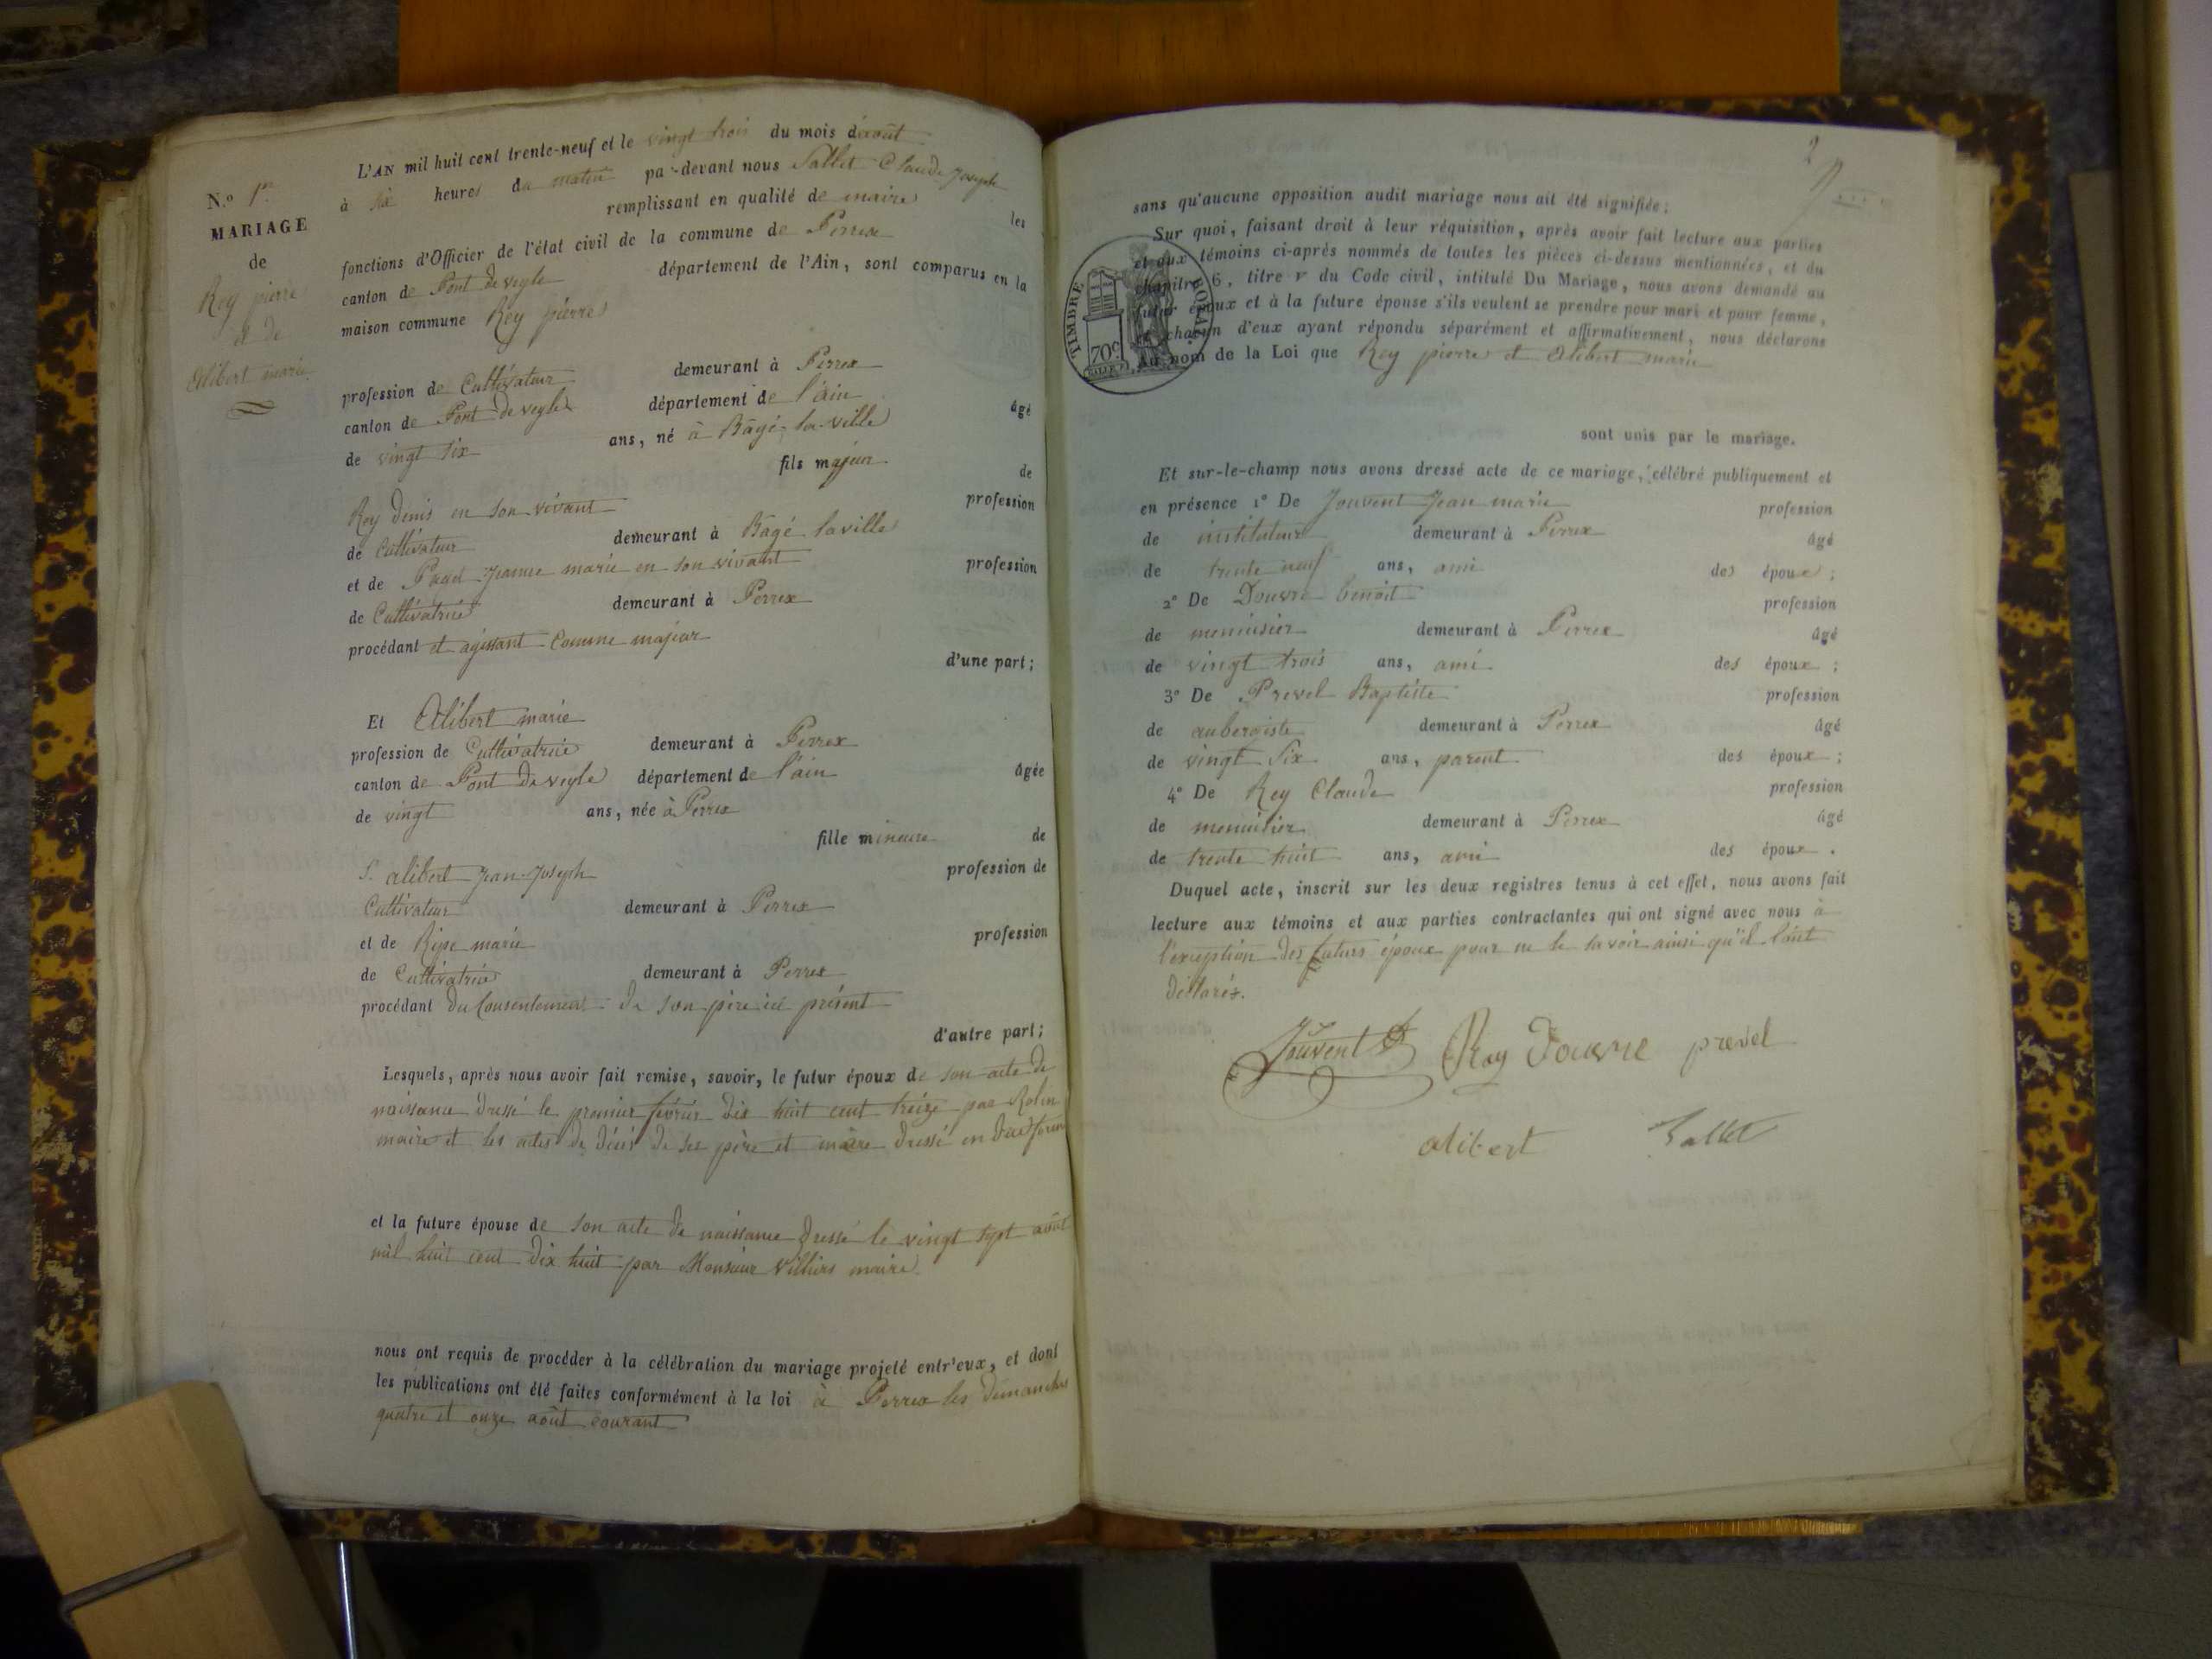 N.o 1er
MARIAGE
de
Rey pierre
et de
Alibert marie
L'AN mil huit cent trente-neuf et le vingt trois du mois d'août
à six heures du matin par-devant nous Sallet Claude Joseph
remplissant en qualité de maire les
fonctions d'Officier de l'état civil de la commune de Perrex
canton de Pont de veyle département de l'Ain, sont comparus en la
maison commune Rey pierre
profession de Cultivateur demeurant à Perrex
canton de Pont de veyle département de l'ain âgé
de vingt six ans, né à Bâgé-la-ville
fils majeur de
Rey denis en son vivant profession
de Cultivateur demeurant à Bâgé laville
et de Pagel Jeanne marie en son vivant profession
de Cultivatrice demeurant à Perrex
procédant et agissant comme majeur
d'une part;
Et Alibert marie
profession de Cultivatrice demeurant à Perrex
canton de Pont de veyle département de l'ain âgée
de vingt ans, née à Perrex
fille mineure de
S. alibert Jean-Joseph profession de
Cultivateur demeurant à Perrex
et de marie profession
de Cultivatrice demeurant à Perrex
procédant du Consentement de son père ici présent
d'autre part;
Lesquels, après nous avoir fait remise, savoir, le futur époux de son acte de
naissance dressé le premier février dix huit cent treize par Rolin
maire et les actes de décès de ses père et mère dressé en due forme
et la future épouse de son acte de naissance dressé le vingt sept août
mil huit cent dix huit par Monsieur Villiers maire.
nous ont requis de procéder à la célébration du mariage projeté entr'eux, et dont
les publications ont été faites conformément à la loi à Perrex les dimanches
quatre et onze août courant
2
sans qu'aucune opposition audit mariage nous ait été signifiée;
Sur quoi, faisant droit à leur réquisition, après avoir fait lecture aux parties
et aux témoins ci-après nommés de toutes les pièces ci-dessus mentionnées, et du
chapitre 6, titre v du Code civil, intitulé Du Mariage, nous avons demandé au
futur époux et à la future épouse s'ils veulent se prendre pour mari et pour femme,
et chacun d'eux ayant répondu séparément et affirmativement, nous déclarons
au nom de la Loi que Rey pierre et Alibert marie
TIMBRE ROYAL
70c
sont unis par le mariage.
Et sur-le-champ nous avons dressé acte de ce mariage, célébré publiquement et
en présence 1° De Jouvent Jean marie profession
de instituteur demeurant à Perrex âgé
de trente neuf ans, ami des époux;
2° De Douvre benoit profession
de menuisier demeurant à Perrex âgé
de vingt trois ans, ami des époux;
3° De Prevel Baptiste profession
de aubergiste demeurant à Perrex âgé
de vingt Six ans, parent des époux;
4° De Rey Claude profession
de menuisier demeurant à Perrex âgé
de trente huit ans, ami des époux.
Duquel acte, inscrit sur les deux registres tenus à cet effet, nous avons fait
lecture aux témoins et aux parties contractantes qui ont signé avec nous à
l'exception des futurs époux pour ne le savoir ainsi qu'il l'ont
déclarés.
Jouvent Rey Douvre prevel
alibert Sallet